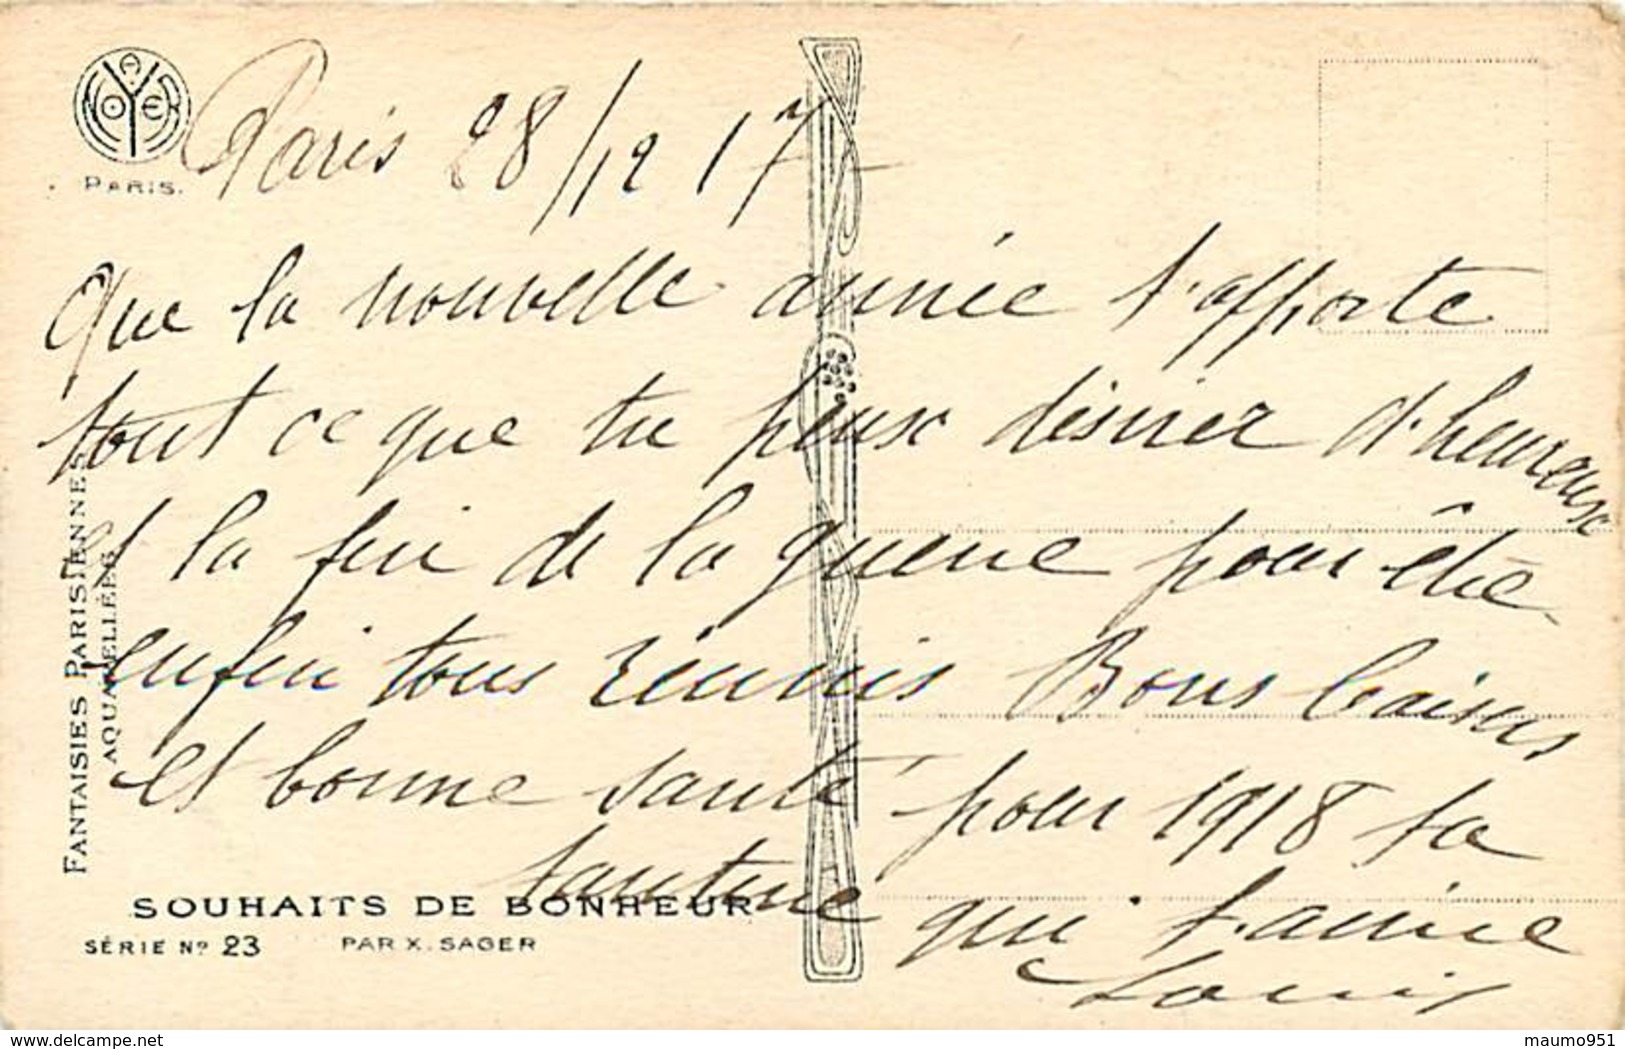 NOYER
PARIS.
Paris 28/12 17
Que la nouvelle année t'apporte
tout ce que tu peux désirer d'heureux
et la fin de la guerre pour être
enfin tous réunis Bons baisers
et bonne santé pour 1918 ta
qui t'aime
Louis
FANTAISIES PARISIENNES
AQUARELLÉES
SOUHAITS DE BONHEUR
SÉRIE Nº 23 PAR X. SAGER
www.delcampe.net
maumo951